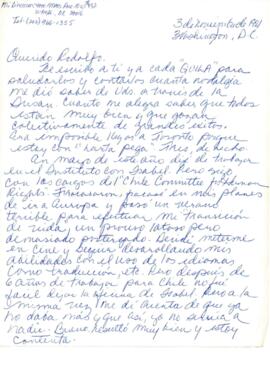 3 de noviembre de 1981
Washington, D.C.
Tel: (202) 966-1355
Querido Rodolfo,
Te escribo a ti y a cada "GUILA" para
saludarlos y contarlos cuanta nostalgia
me dió saber de Uds. a través de la
Susan. Cuanto me alegra saber que todos
estan muy bien y que gozan
colectivamente de grandes exitos.
Era imposible llegar a Toronto porque
estoy con "harta pega". Tres, de hecho.
En mayo de este año dejé de trabajar
en el Instituto con Isabel. Pero sigo
con los cargos del Chile Committee for Human
Rights. Fracasaron, pacaso en mis planes
de ir a Europa y pasó un verano
terrible para efectuar mi transición
de vida, un proceso latoso pero
demasiado postergado. Decidí meterme
en Cine y seguir desarrollando mis
abilidades con el uso de los idiomas
como traducción, etc. Pero después de
6 años de trabajar para Chile no fué
facil dejar la oficina de Isabel. Pero a la
misma vez me di cuenta de que ya
no daba más y que así, yo no servía a
nadie. Bueno, resultó muy bien y estoy
contenta.